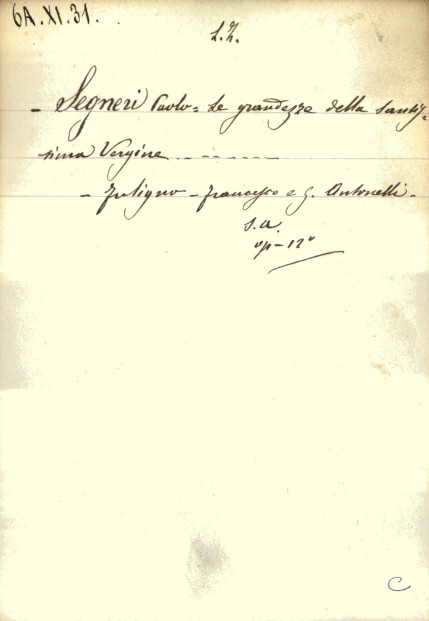 6A.XI.31.
L.Z.
- Segneri Paolo = Le grandezze della santis=
sima Vergine - - - - - -
- Fuligno - Francesco e G. Antonelli -
s.a.
op - 12°
C